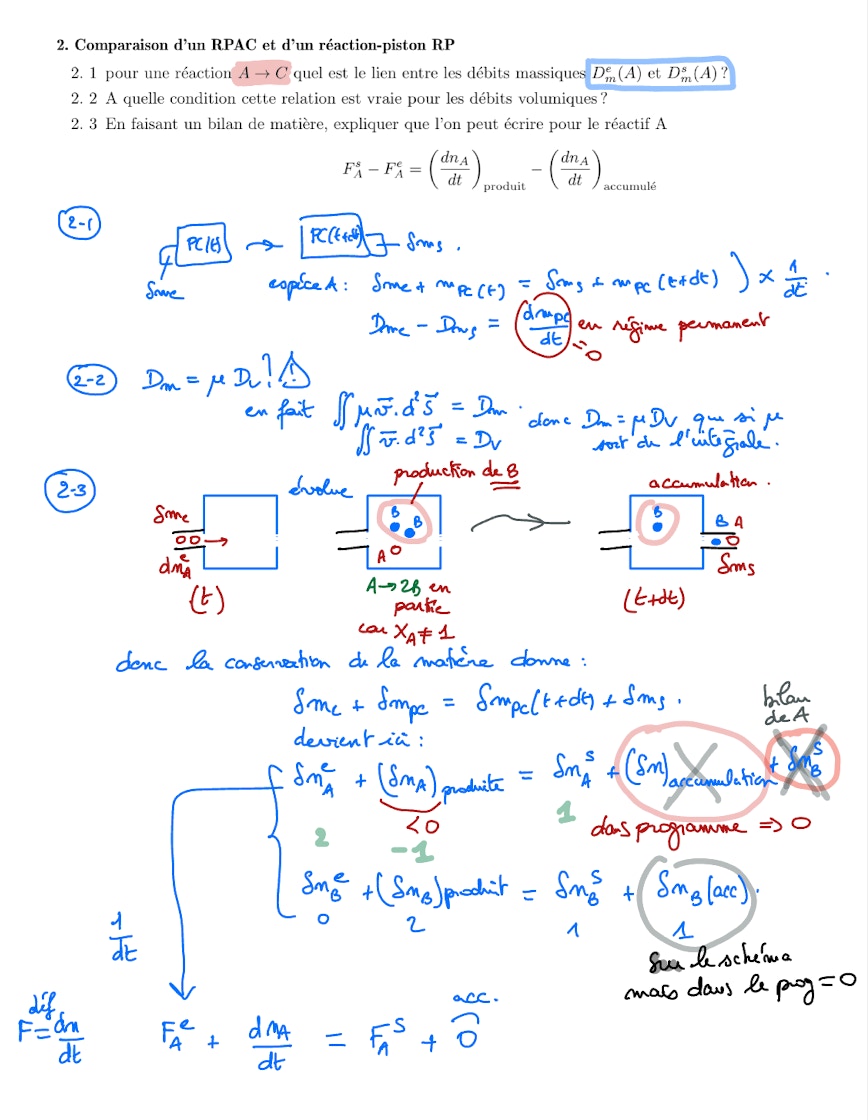 2. Comparaison d'un RPAC et d'un réaction-piston RP
2. 1 pour une réaction A → C quel est le lien entre les débits massiques D_m^e(A) et D_m^s(A) ?
2. 2 A quelle condition cette relation est vraie pour les débits volumiques ?
2. 3 En faisant un bilan de matière, expliquer que l'on peut écrire pour le réactif A
F_A^s − F_A^e = (dn_A/dt)_produit − (dn_A/dt)_accumulé
2-1
PC(t) → PC(t+dt) δms.
δme
espèce A : δme + m_PC(t) = δms + m_PC(t+dt) ) × 1/dt.
Dme − Dms = (dmpc/dt) en régime permanent
=0
2-2 Dm = μ Dv ? !
en fait ∬ μ v⃗. d²S⃗ = Dm. donc Dm = μ Dv que si μ
∬ v⃗. d²S⃗ = Dv sort de l'intégrale.
2-3
évolue
production de B
accumulation.
δme
dn_A^e
(t)
B
B
A
A→2B en
partie
car X_A ≠ 1
B
B A
δms
(t+dt)
donc la conservation de la matière donne :
δme + δmpc = δmpc(t+dt) + δms.
bilan
de A
devient ici :
δn_A^e + (δn_A)produite = δn_A^s + (δn)accumulation + δn_B^s
<0
2
-1
1
dans programme => 0
δn_B^e + (δn_B)produit = δn_B^s + δn_B(acc).
0
2
1
1
1/dt
sur le schéma
mais dans le prog = 0
déf
F = dn/dt
F_A^e + dn_A/dt = F_A^s + 0
acc.